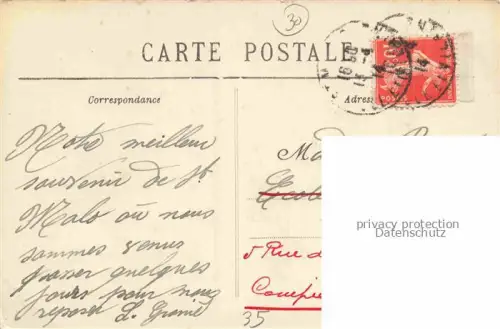 30
CARTE POSTALE
Correspondance
Adres
Notre meilleur
souvenir de St
Malo où nous
sommes venus
passer quelques
jours pour nous
reposer L.
Ma
Ecole
5 Rue d
Compie
35
privacy protection
Datenschutz